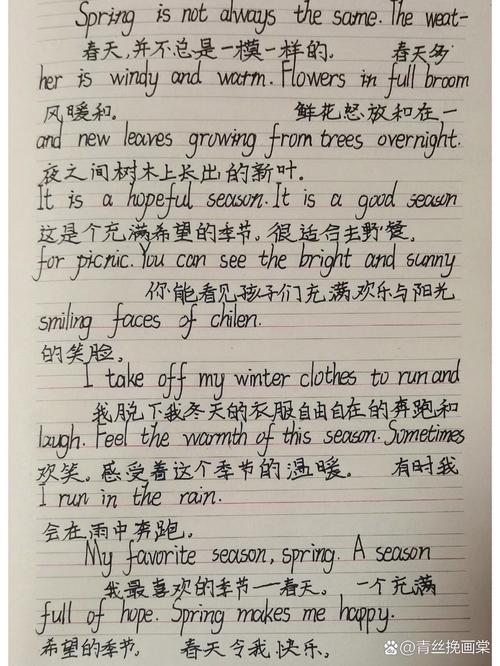 Spring is not always the same. The weat-
春天,并不总是一模一样的。 春天多
her is windy and warm. Flowers in full broom
风暖和。 鲜花怒放和在一
and new leaves growing from trees overnight.
夜之间树木上长出的新叶。
It is a hopeful season. It is a good season
这是个充满希望的季节。很适合去野餐。
for picnic. You can see the bright and sunny
你能看见孩子们充满欢乐与阳光
smiling faces of chilen.
的笑脸。
I take off my winter clothes to run and
我脱下我冬天的衣服自由自在的奔跑和
laugh. Feel the warmth of this season. Sometimes
欢笑。感受着这个季节的温暖。 有时我
I run in the rain.
会在雨中奔跑。
My favorite season, spring. A season
我最喜欢的季节——春天。 一个充满
full of hope. Spring makes me happy.
希望的季节。 春天令我快乐。
青丝挽画棠